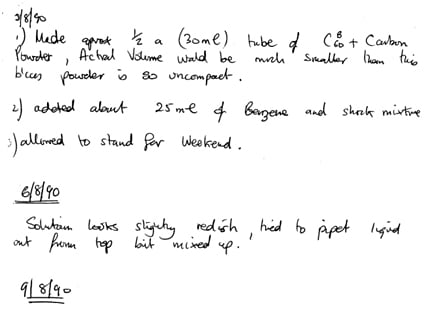 3/8/90
1) Made aprox 1/2 a (30ml) tube of C60 + Carbon
Powder, Actual Volume would be much smaller than this
bices powder is so uncompact.
2) added about 25ml of Benzene and shook mixture
3) allowed to stand for weekend.
6/8/90
Solution looks slightly redish, tried to pipet liquid
out from top but mixed up.
9/8/90